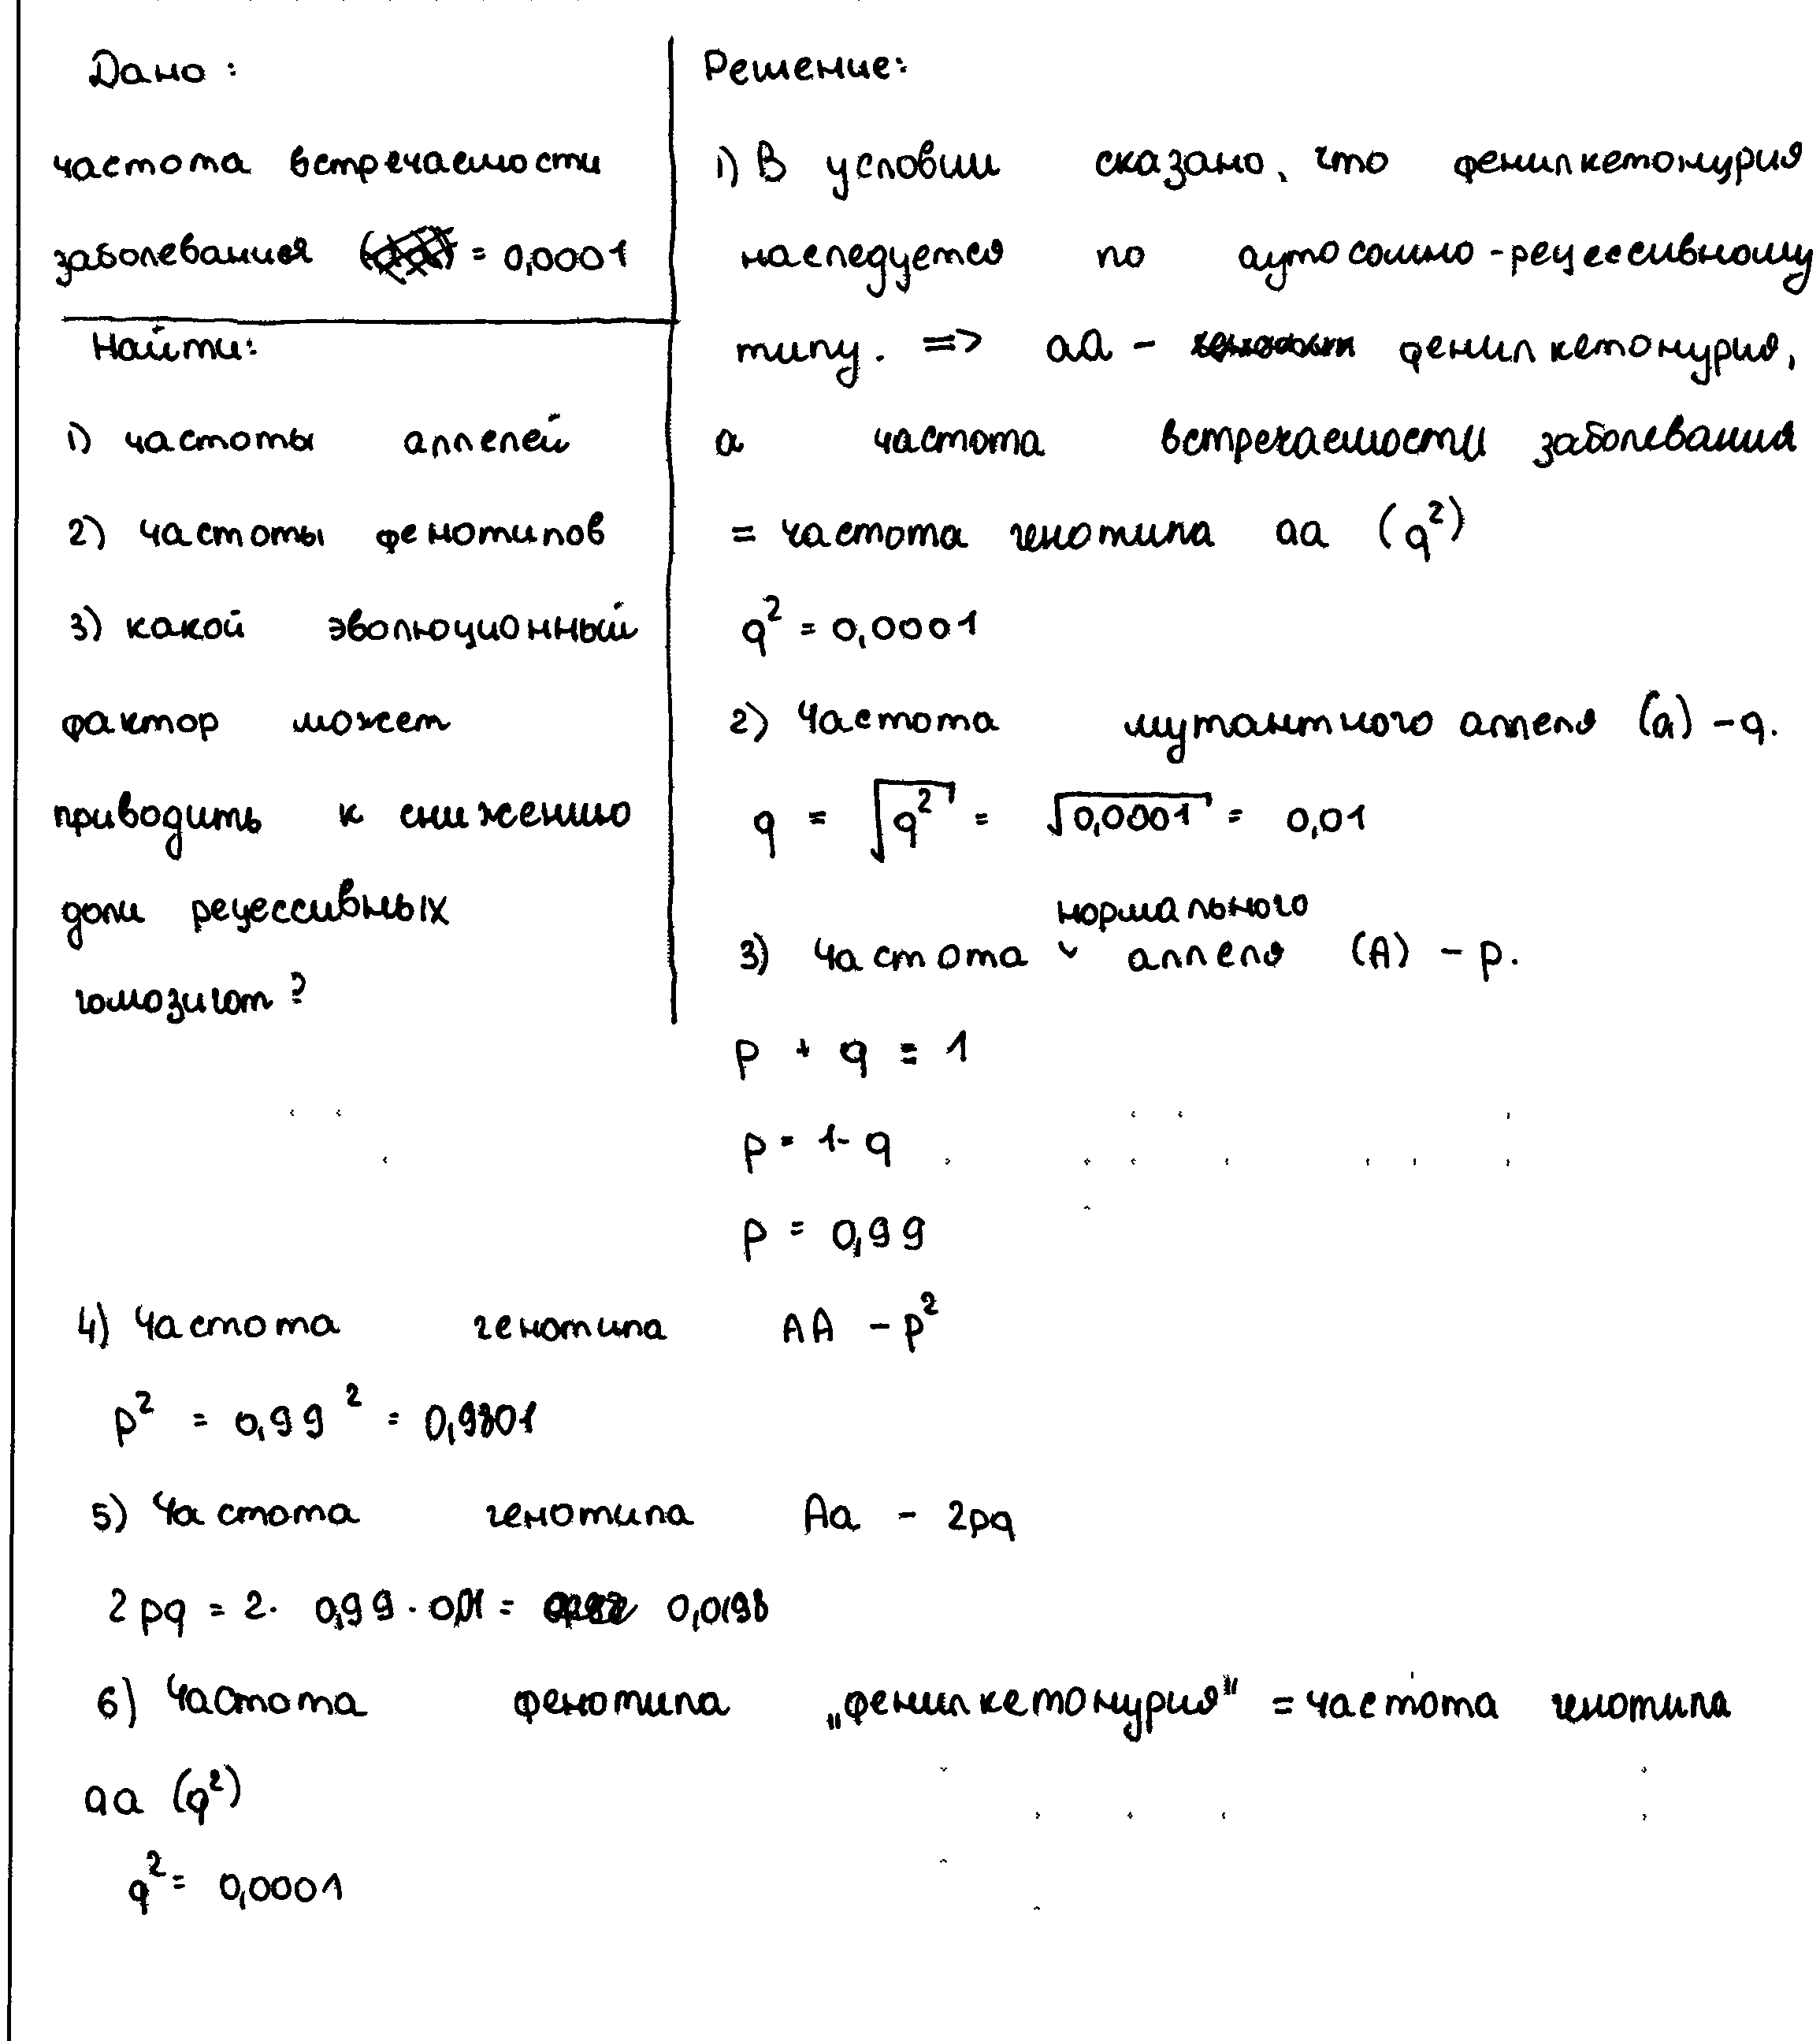 Дано:
частота встречаемости
заболевания = 0,0001
Найти:
1) частоты аллелей
2) частоты фенотипов
3) какой эволюционный
фактор может
приводить к снижению
доли рецессивных
гомозигот?
Решение:
1) В условии сказано, что фенилкетонурия
наследуется по аутосомно-рецессивному
типу. => аа - фенилкетонурия,
а частота встречаемости заболевания
= частота генотипа аа (q²)
q² = 0,0001
2) Частота мутантного аллеля (а) - q.
q = √q² = √0,0001 = 0,01
3) Частота нормального аллеля (А) - p.
p + q = 1
p = 1 - q
p = 0,99
4) Частота генотипа АА - p²
p² = 0,99² = 0,9801
5) Частота генотипа Аа - 2pq
2pq = 2 · 0,99 · 0,01 = 0,0198
6) Частота фенотипа „фенилкетонурия" = частота генотипа
аа (q²)
q² = 0,0001